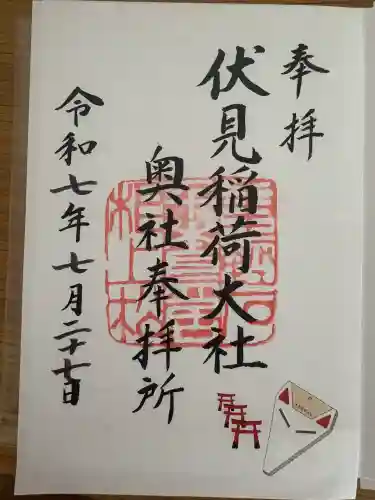 奉拝
伏見稲荷大社
奥社奉拝所
令和七年七月二十七日